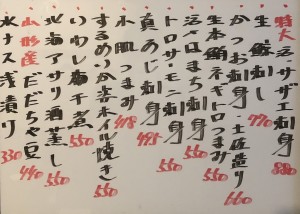 特大 活・サザエ刺身 880
生鯨刺し 770
かつお刺身・土佐造り 660
生本鮪ネギトロつまみ 550
活〆はまち刺身 550
トロサーモン刺身 550
真あじ刺身 495
小肌つまみ 418
するめいかホイル焼き 550
いわし梅干煮
北海アサリ酒蒸し 550
山形産だだちゃ豆 440
水ナス浅漬り 330